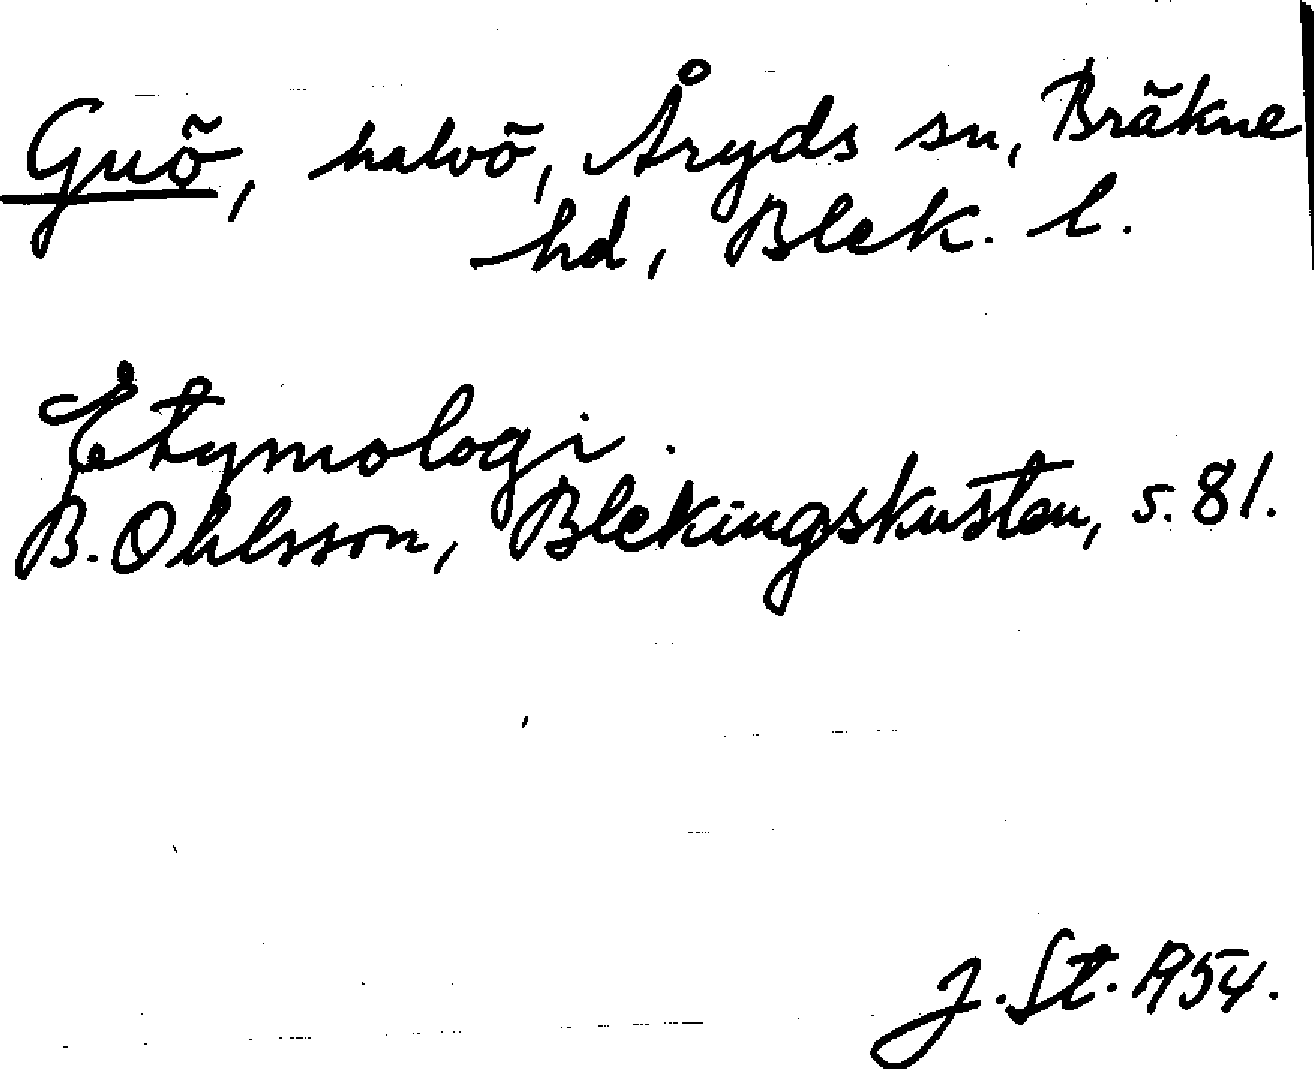 Guö, halvö, Åryds sn, Bräkne
hd, Blek. l.
Etymologi.
B. Ohlsson, Blekingskusten, s. 81.
J. St. 1954.